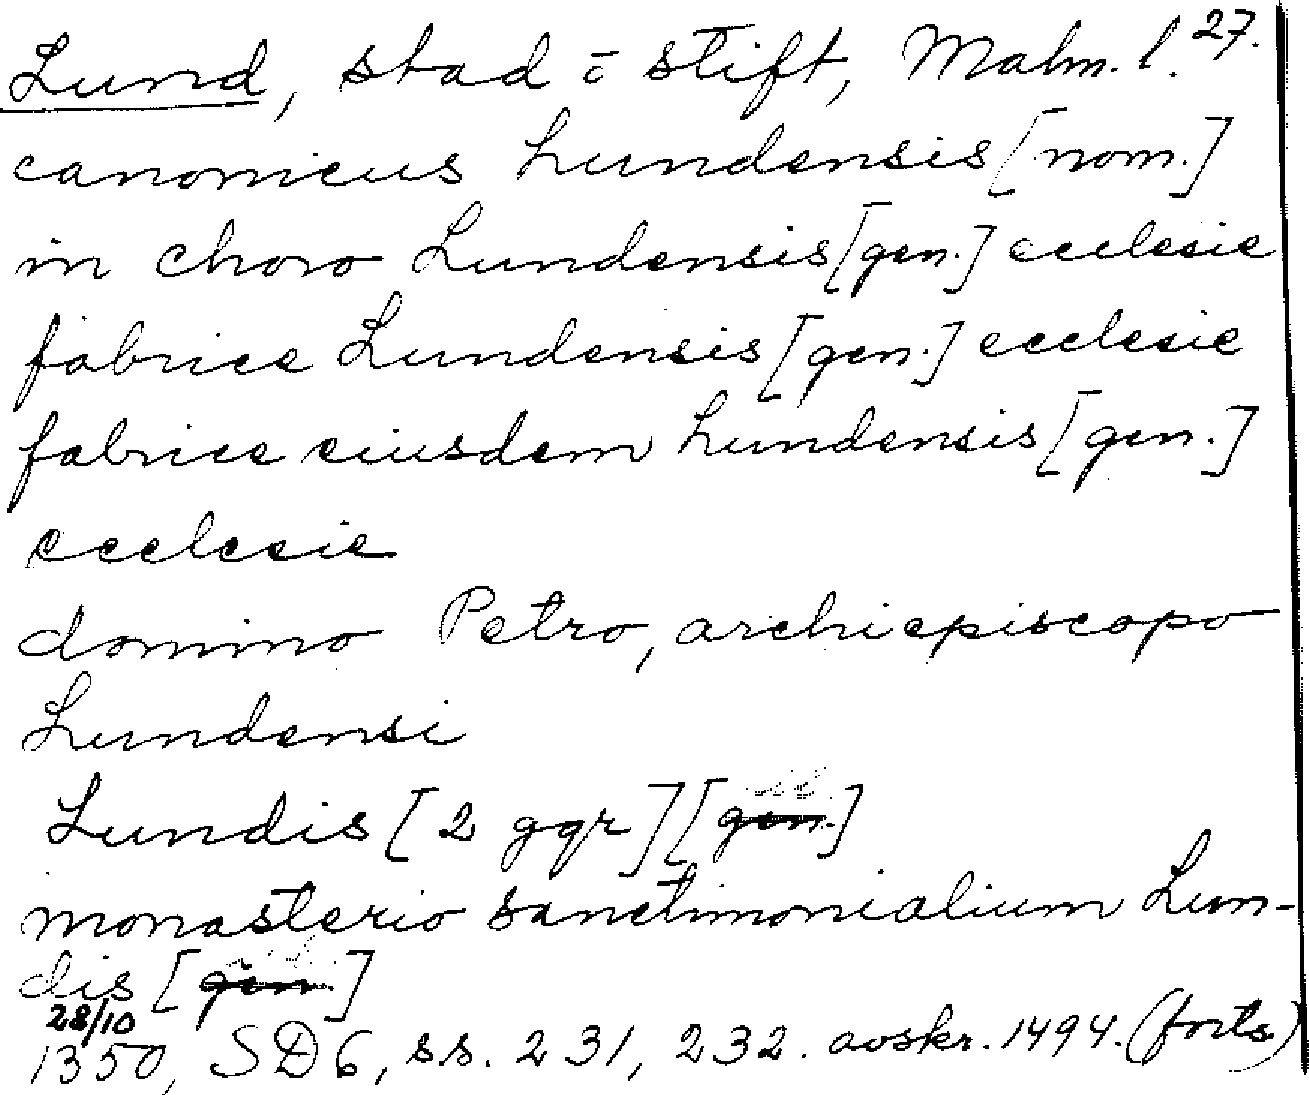 Lund, stad o stift, Malm. l. 27.
canonicus Lundensis [nom.]
in choro Lundensis [gen.] ecclesie
fabrice Lundensis [gen.] ecclesie
fabrice eiusdem Lundensis [gen.]
ecclesie
domino Petro, archiepiscopo
Lundensi
Lundis [2 ggr] [gen.]
monasterio sanctimonialium Lun-
dis [gen.]
28/10
1350, SD6, ss. 231, 232. avskr. 1494. (forts)